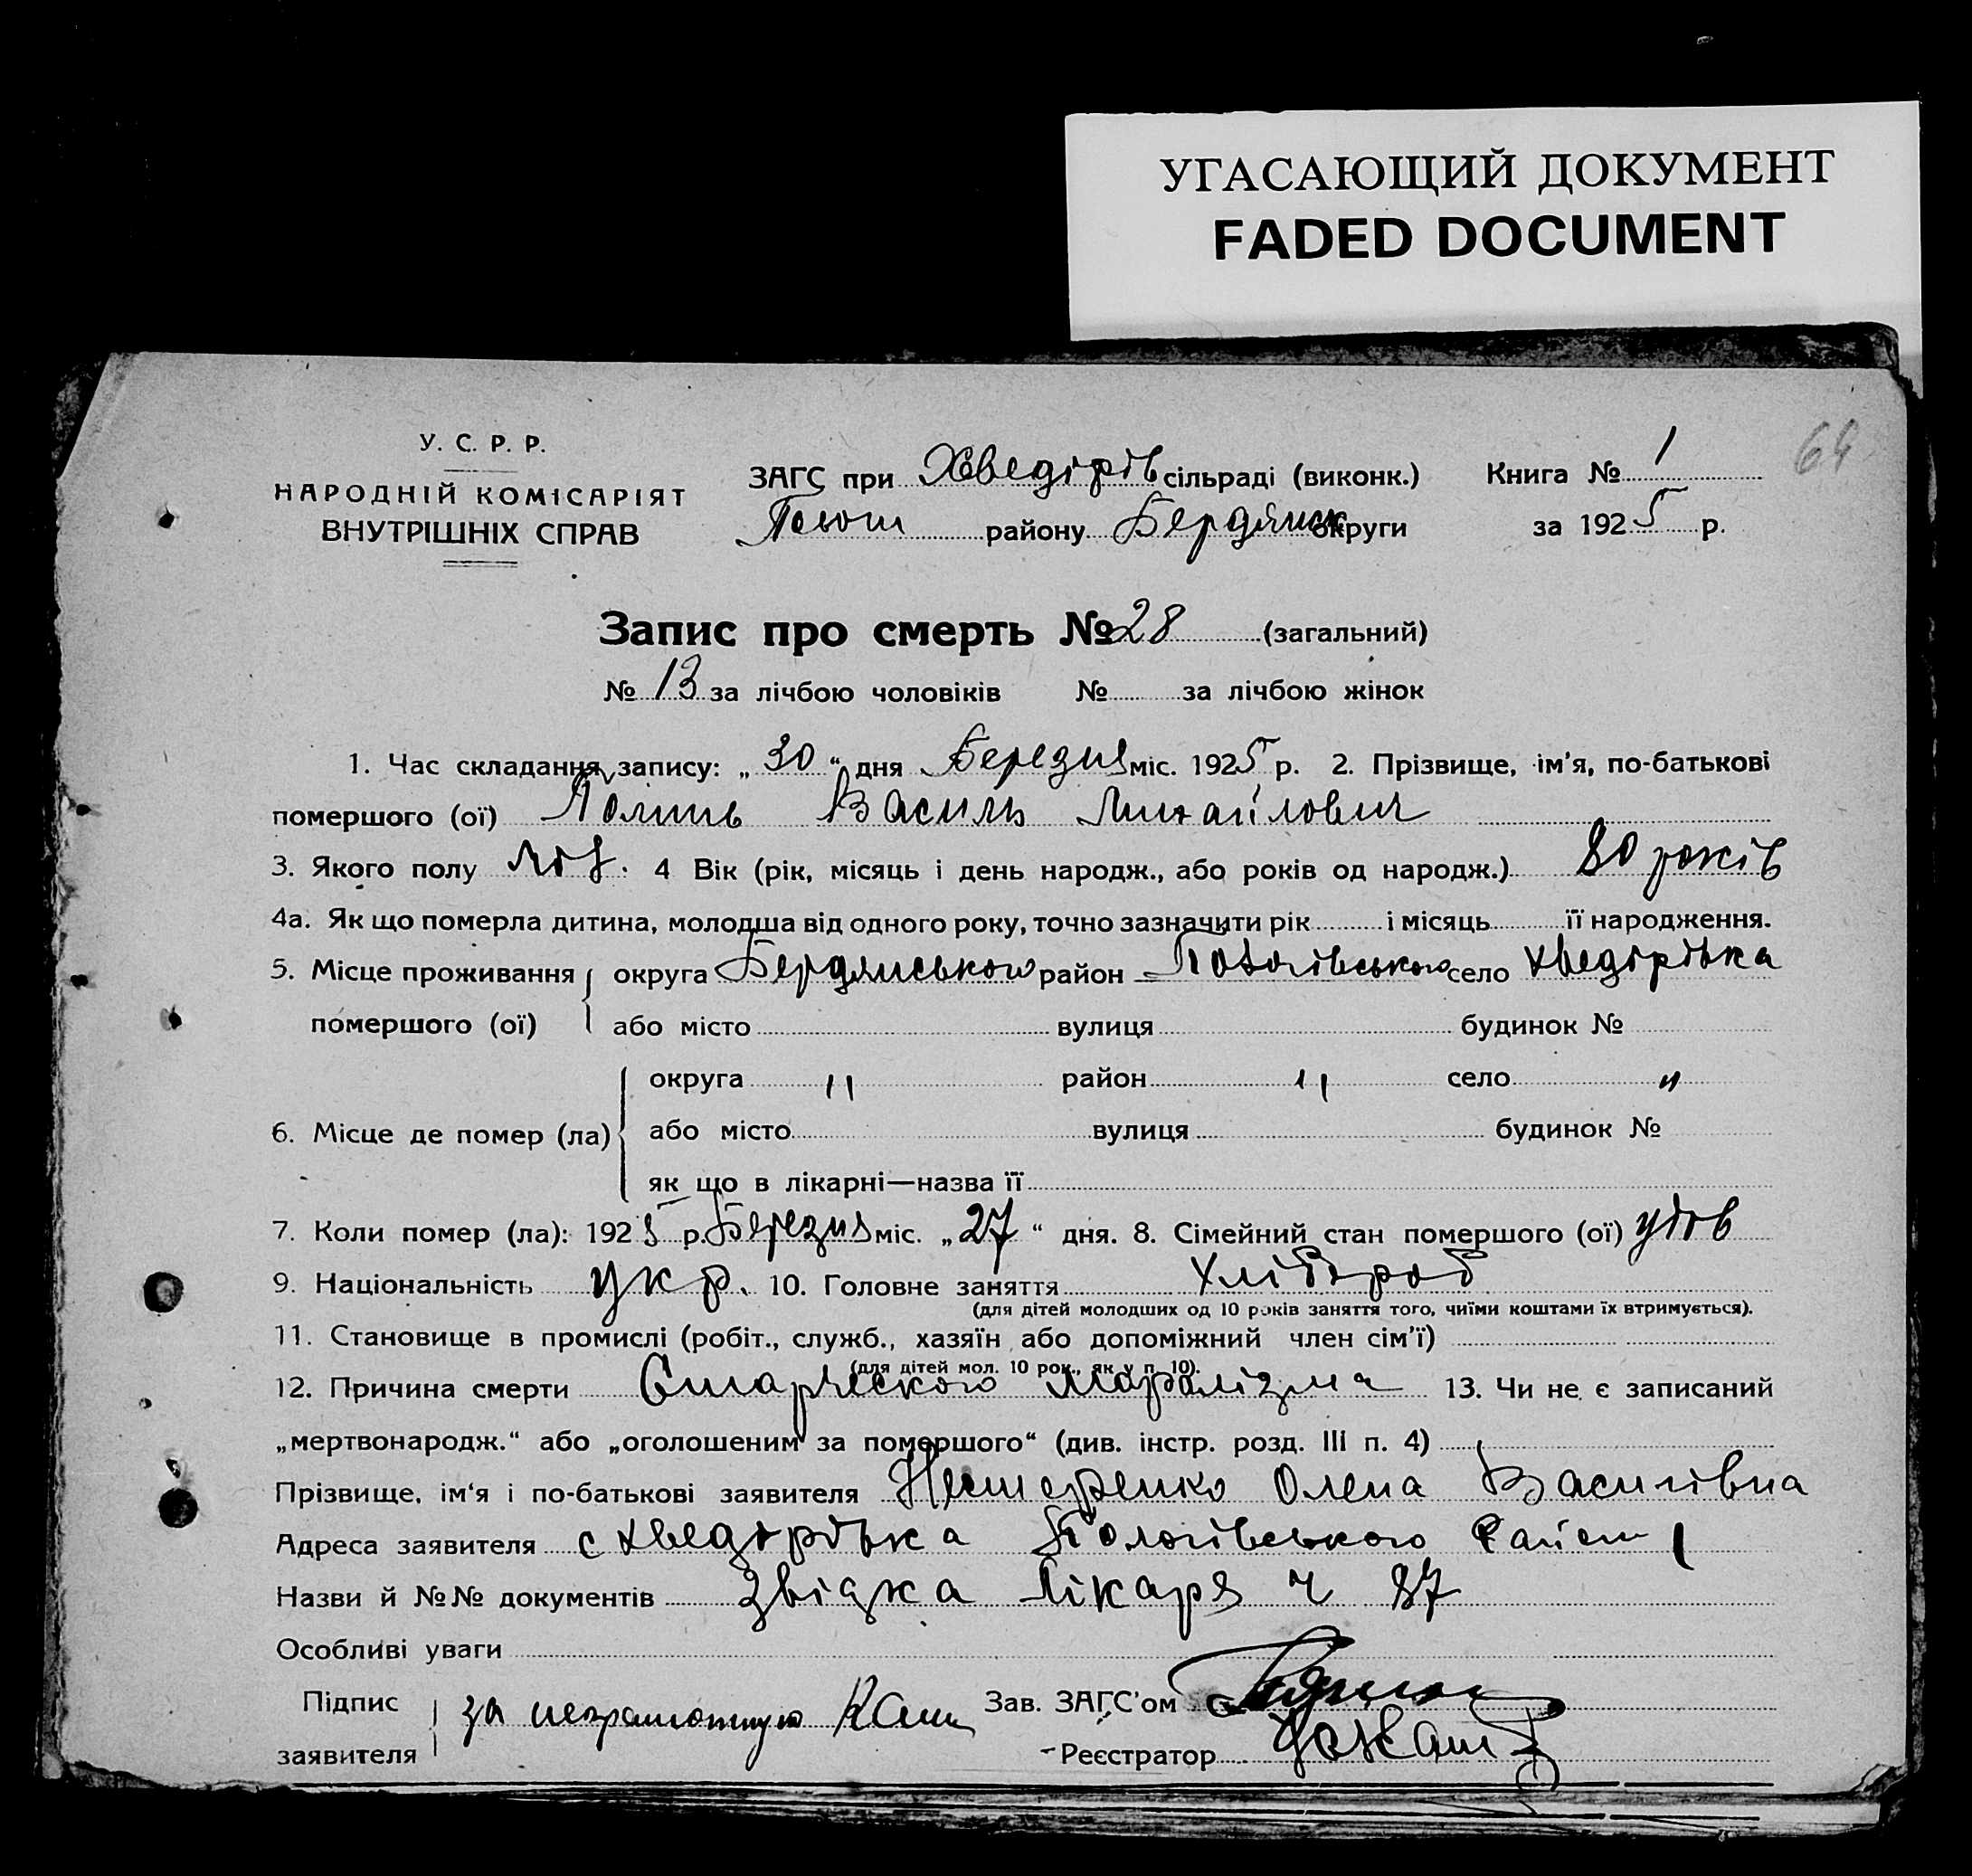 УГАСАЮЩИЙ ДОКУМЕНТ
FADED DOCUMENT
64
У. С. Р. Р.
НАРОДНІЙ КОМІСАРІЯТ
ВНУТРІШНІХ СПРАВ
ЗАГС при Хведірів сільраді (виконк.) Книга № 1
району Бердянск округи за 1925 р.
Запис про смерть № 28 (загальний)
№ 13 за лічбою чоловіків № за лічбою жінок
1. Час складання запису: „30“ дня Березня міс. 1925 р. 2. Прізвище, ім'я, по-батькові
помершого (ої) Василь Михайлович
3. Якого полу 4 Вік (рік, місяць і день народж., або років од народж.) 80 років
4а. Як що померла дитина, молодша від одного року, точно зазначити рік і місяць її народження.
5. Місце проживання округа Бердянського район Пологівського село Хведірівка
помершого (ої) або місто вулиця будинок №
округа " район " село "
6. Місце де помер (ла) або місто вулиця будинок №
як що в лікарні—назва її
7. Коли помер (ла): 1925 р. Березня міс. „27“ дня. 8. Сімейний стан помершого (ої) удів
9. Національність укр. 10. Головне заняття Хлібороб
(для дітей молодших од 10 років заняття того, чиїми коштами їх втримується).
11. Становище в промислі (робіт., служб., хазяїн або допоміжний член сім'ї)
(для дітей мол. 10 рок., як у п. 10).
12. Причина смерти Старческого Маразма 13. Чи не є записаний
„мертвонародж.“ або „оголошеним за помершого“ (див. інстр. розд. III п. 4)
Прізвище, ім'я і по-батькові заявителя Нестеренко Олена Василівна
Адреса заявителя с Хведірівка Пологівського Район
Назви й №№ документів Звідка Лікаря ч 87
Особливі уваги
Підпис
заявителя за неграмотную
Зав. ЗАГС'ом
Реєстратор